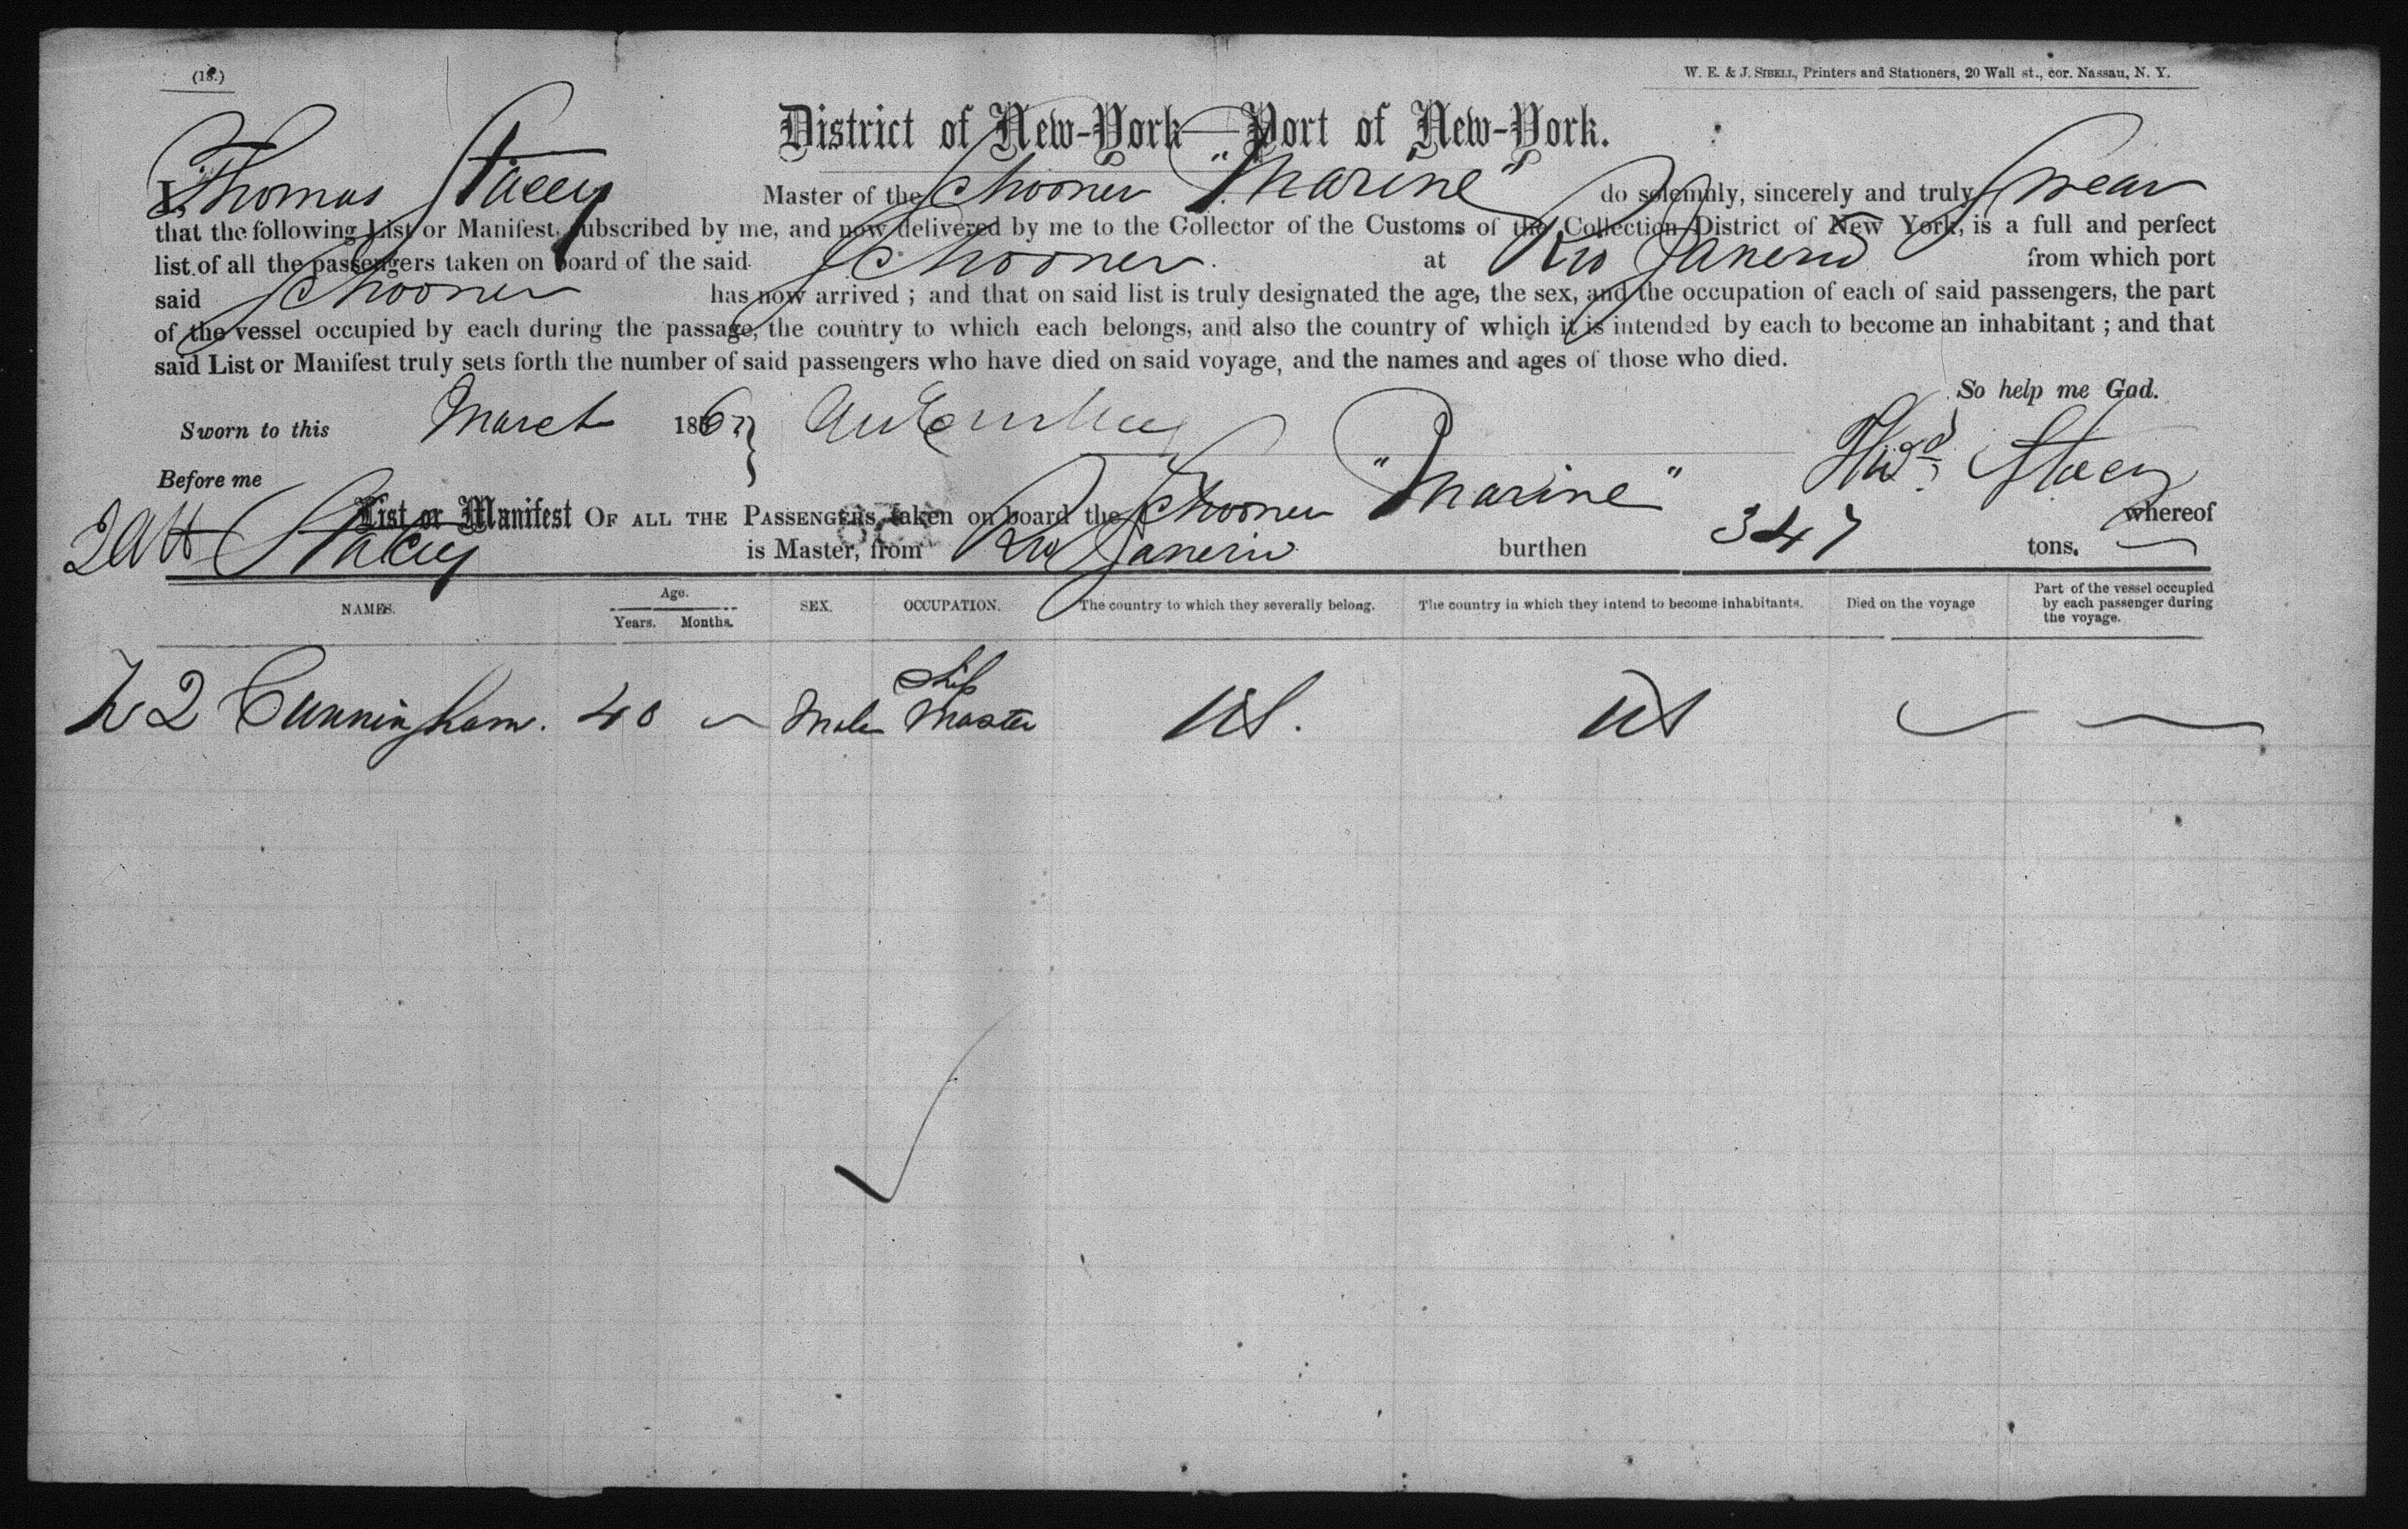 (18.)
W. E. & J. SIBELL, Printers and Stationers, 20 Wall st., cor. Nassau, N. Y.
District of New-York—Port of New-York.
I, Thomas Stacey Master of the Schooner "Marine" do solemnly, sincerely and truly Swear
that the following List or Manifest, subscribed by me, and now delivered by me to the Collector of the Customs of the Collection District of New York, is a full and perfect
list of all the passengers taken on board of the said Schooner at Rio Janerio from which port
said Schooner has now arrived; and that on said list is truly designated the age, the sex, and the occupation of each of said passengers, the part
of the vessel occupied by each during the passage, the country to which each belongs, and also the country of which it is intended by each to become an inhabitant; and that
said List or Manifest truly sets forth the number of said passengers who have died on said voyage, and the names and ages of those who died.
So help me God.
Sworn to this March 1867
Stacey
Before me
List or Manifest OF ALL THE PASSENGERS taken on board the Schooner "Marine" whereof
Stacey is Master, from Rio Janerio burthen 347 tons.
NAMES. Age. Years. Months. SEX. OCCUPATION. The country to which they severally belong. The country in which they intend to become inhabitants. Died on the voyage Part of the vessel occupied by each passenger during the voyage.
Cunningham. 40 Male Ship Master US. US